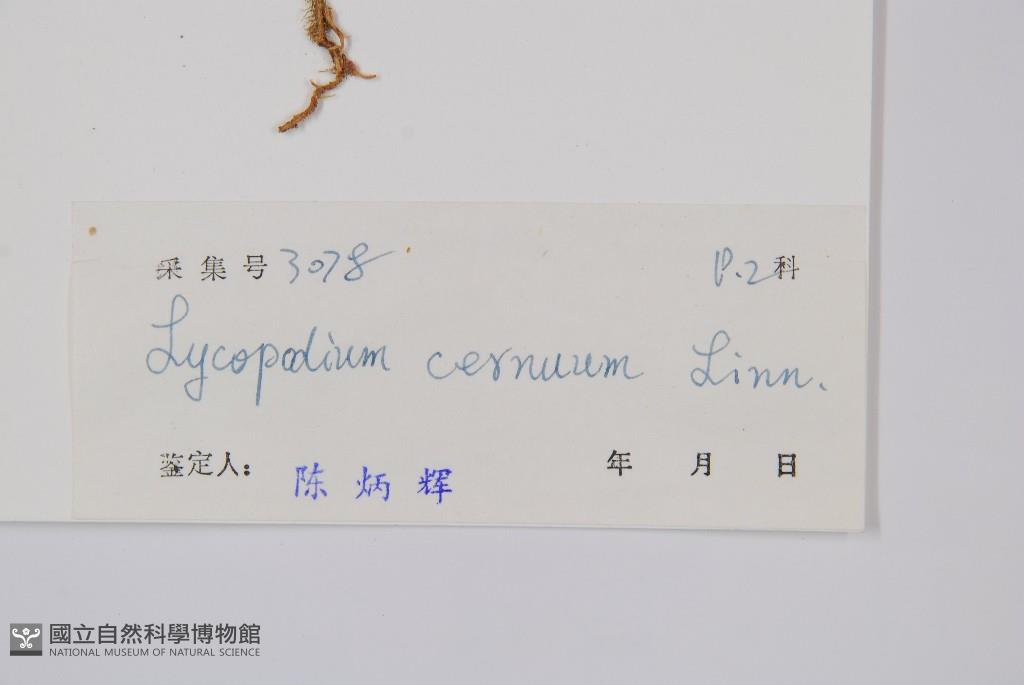 采集号 3078 P.2科
Lycopodium cernuum Linn.
鉴定人: 陈炳辉 年 月 日
國立自然科學博物館
NATIONAL MUSEUM OF NATURAL SCIENCE